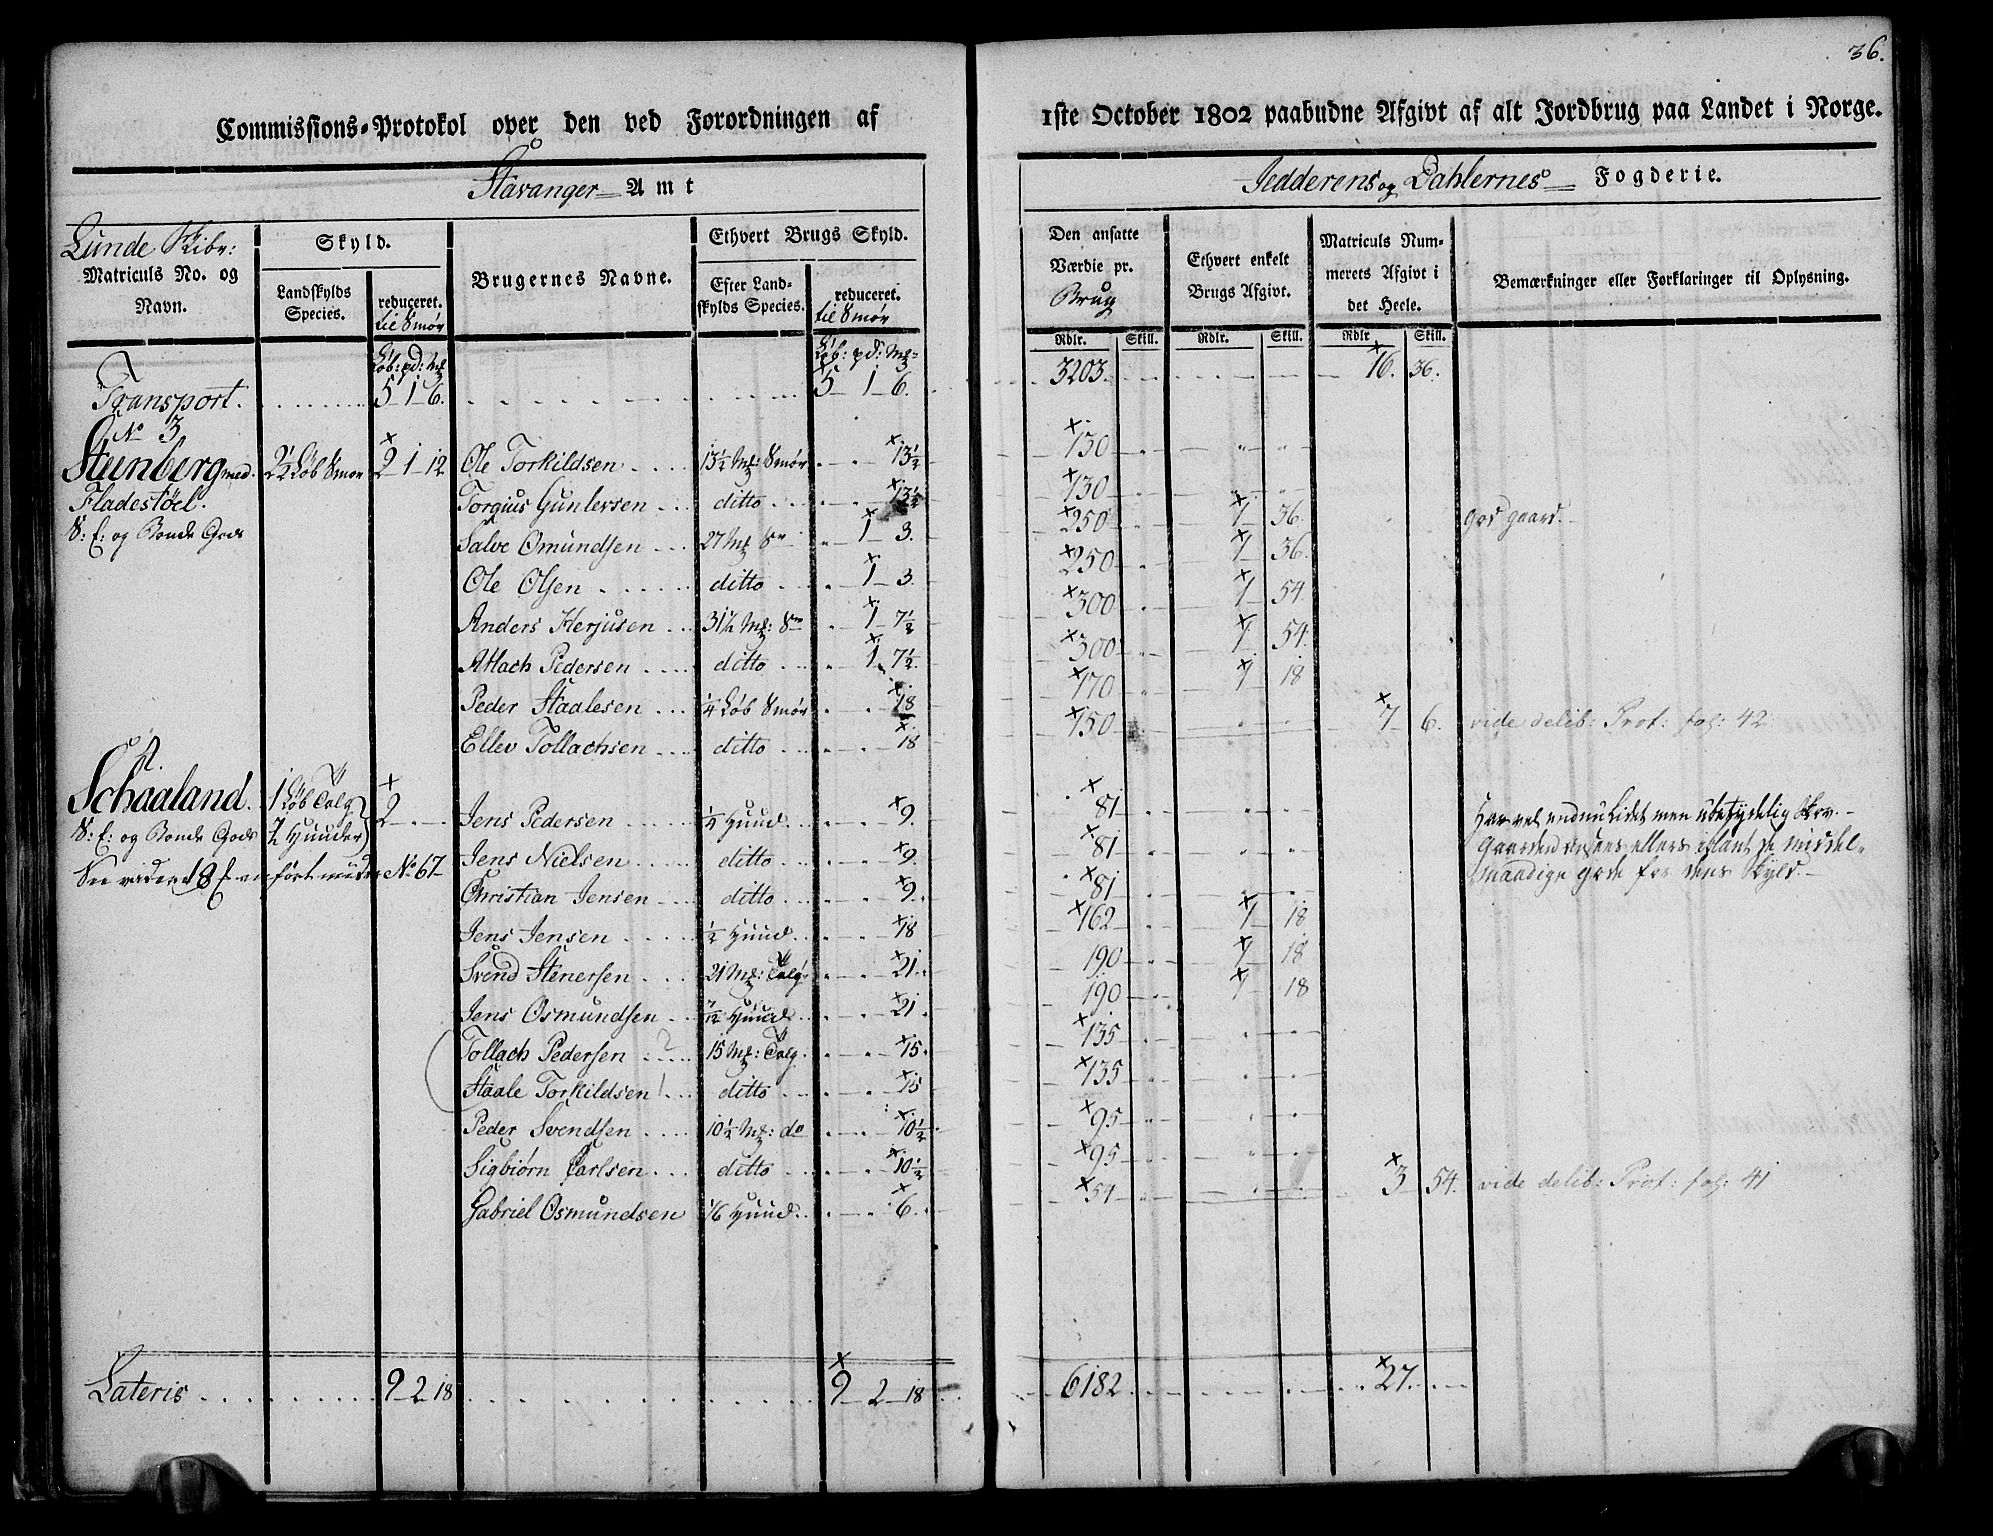 36.
Commissions-Protokol over den ved Forordningen af 1ste October 1802 paabudne Afgivt af alt Jordbrug paa Landet i Norge.
Stavanger Amt
Jedderens og Dahlernes Fogderie.
Lunde Skibr:
Matriculs No. og Navn.
Skyld.
Landskylds Species.
reduceret. til Smør
Brugernes Navne.
Ethvert Brugs Skyld.
Efter Landskylds Species.
reduceret. til Smør
Den ansatte Værdie pr. Brug
Ethvert enkelt Brugs Afgivt.
Matriculs Nummerets Afgivt i det Heele.
Bemærkninger eller Forklaringer til Oplysning.
Løb: pd: Mk Løb: pd: Mk Rdlr. Skill. Rdlr. Skill. Rdlr Skill.
Transport. 5 1 6. 5 1 6. 3203. 16. 36.
No 3
Steenberg med 2½ Løb Smør 2 1 12 Ole Torkildsen 13½ Mk: Smør 13½ 130
Fladestøel. Torgius Gunlevsen ditto 13½ 130
S: E: og Bonde Gods Salve Omundsen 27 Mk Sm 1 3. 250 1 36. god gaard.
Ole Olsen ditto 1 3. 250 1 36.
Anders Herjusen 31½ Mk: Sm 1 7½ 300 1 54.
Atlach Pedersen ditto 1 7½ 300 1 54.
Peder Staalesen ¼ Løb Smør 18 170 1 18
Ellev Tollachsen ditto 18 150 7 6. vide delib: Prot: fol: 42
4.
Schaaland. 1 Løb Talg 2 Jens Pedersen ¼ Huud 9. 81 Har vel endnu Lidet men ubetydelig Skov.
S: E: og Bonde Gods 2 Huuder Jens Nielsen ditto 9. 81
See videre 18 anført under No 67 Christian Jensen ditto 9. 81
Jens Jensen ½ Huud 18 162 1 18
Svend Stenersen 21 Mk: Talg 21. 190 1 18
Jens Osmundsen 7/12 Huud 21. 190 1 18
Tollach Pedersen 15 Mk: Talg. 15. 135
Staale Torkildsen ditto 15 135
Peder Svendsen 10½ Mk: do 10½ 95
Sigbiørn Carlsen ditto 10½ 95
Gabriel Osmundsen 1/6 Huud 6. 54 3 54. vide delib: Prot: fol: 41
Lateris 9 2 18 9 2 18 6182 27.